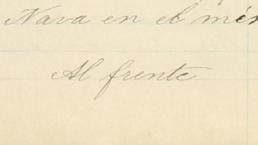 Nava en el mer
Al frente